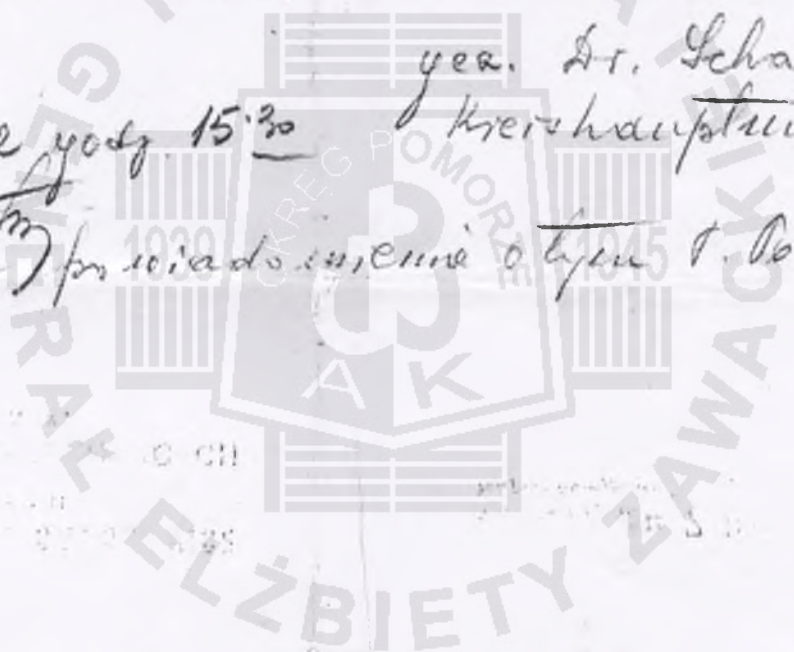 gez. Dr. Scha
godz. 15.30 Kreishauptm
powiadomienie o tym P. Po
OKRĘG POMORZE
1939 1945
AK
GENERAŁ ELŻBIETY ZAWACKIEJ